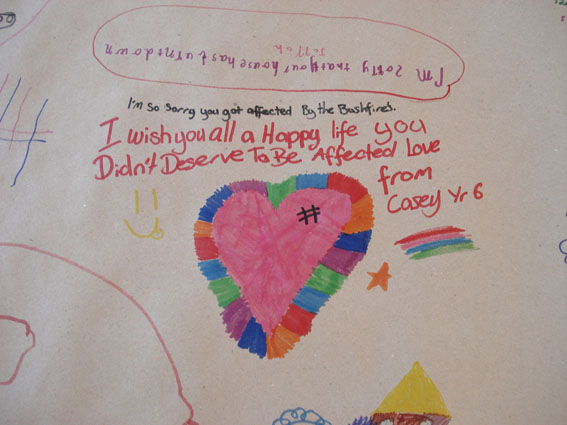 I'm sorry that your house has burnt down
I'm so sorry you got affected By the Bushfires.
I wish you all a Happy life you
Didn't Deserve To Be Affected Love
from
Casey Yr 6
#